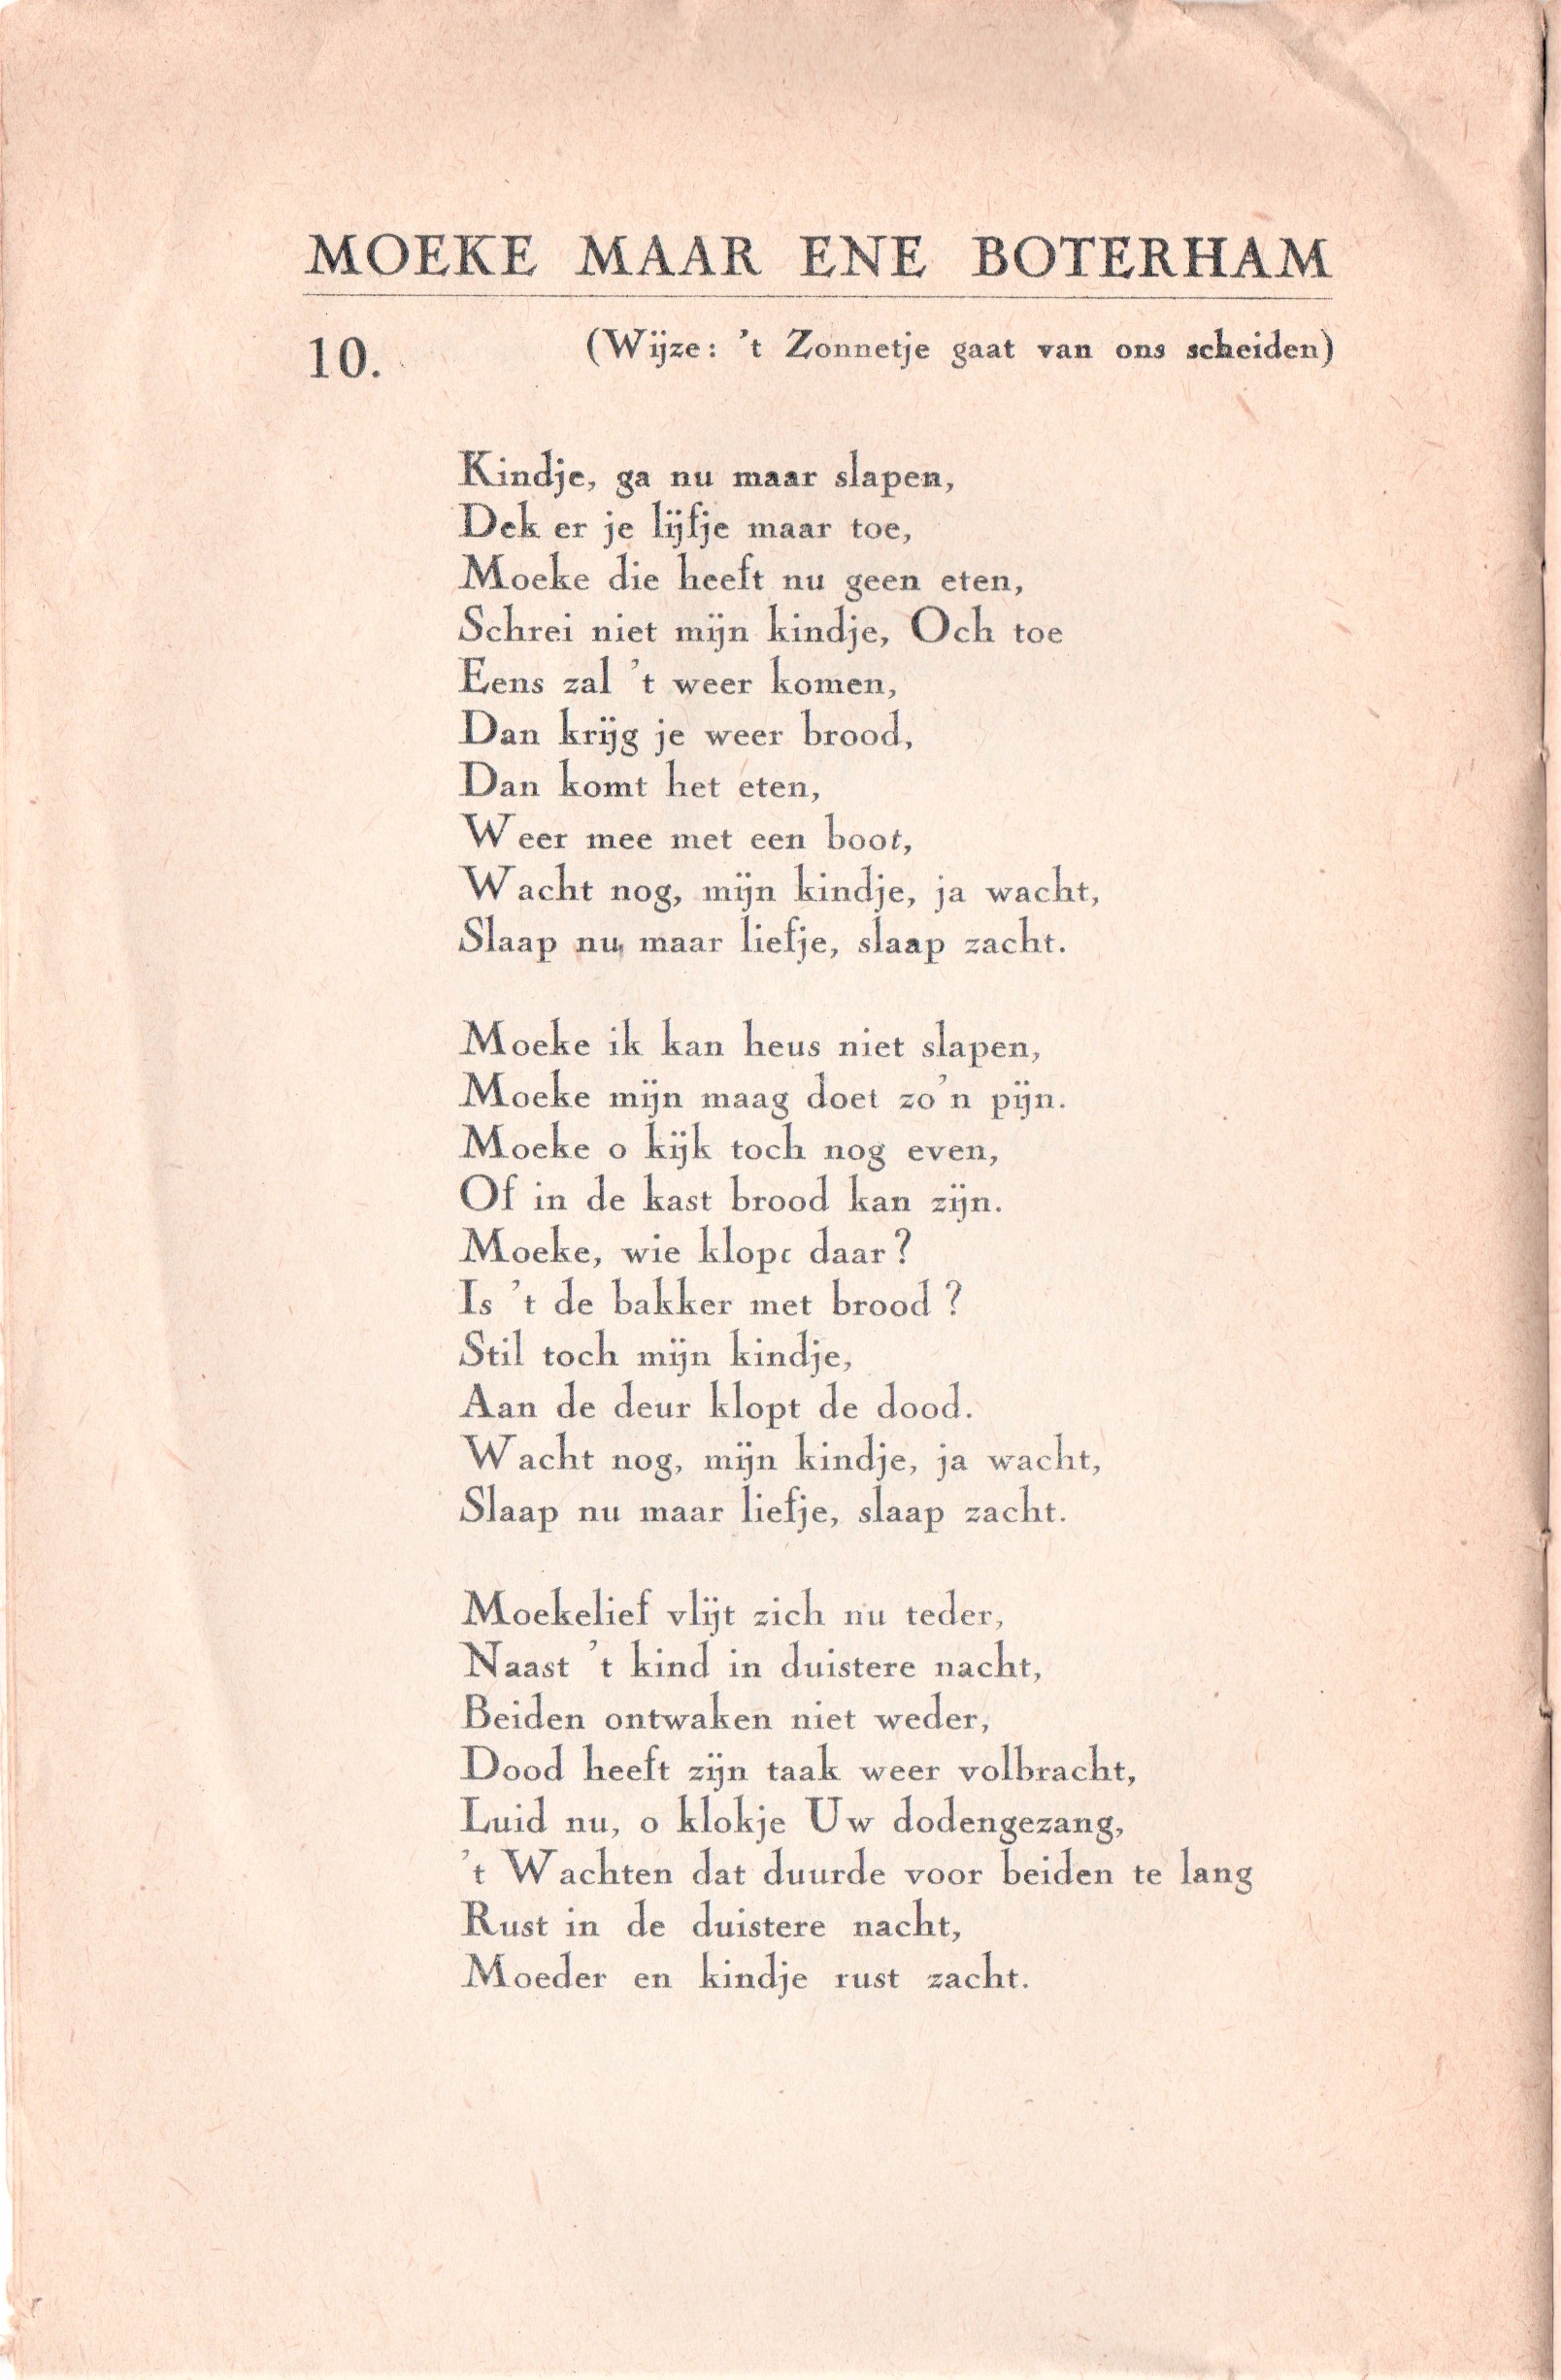 MOEKE MAAR ENE BOTERHAM
10.
(Wijze: 't Zonnetje gaat van ons scheiden)
Kindje, ga nu maar slapen,
Dek er je lijfje maar toe,
Moeke die heeft nu geen eten,
Schrei niet mijn kindje, Och toe
Eens zal 't weer komen,
Dan krijg je weer brood,
Dan komt het eten,
Weer mee met een boot,
Wacht nog, mijn kindje, ja wacht,
Slaap nu maar liefje, slaap zacht.
Moeke ik kan heus niet slapen,
Moeke mijn maag doet zo'n pijn.
Moeke o kijk toch nog even,
Of in de kast brood kan zijn.
Moeke, wie klopt daar?
Is 't de bakker met brood?
Stil toch mijn kindje,
Aan de deur klopt de dood.
Wacht nog, mijn kindje, ja wacht,
Slaap nu maar liefje, slaap zacht.
Moekelief vlijt zich nu teder,
Naast 't kind in duistere nacht,
Beiden ontwaken niet weder,
Dood heeft zijn taak weer volbracht,
Luid nu, o klokje Uw dodengezang,
't Wachten dat duurde voor beiden te lang
Rust in de duistere nacht,
Moeder en kindje rust zacht.